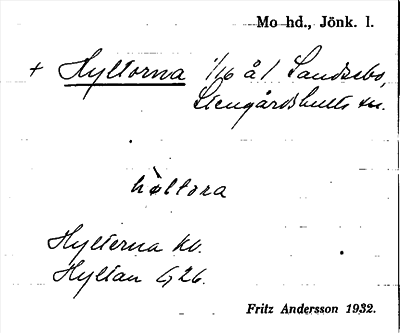 Mo hd., Jönk. l.
+ Hyltorna 1/16 å 1 Sandsebo,
Stengårdshults sn.
høltora
Hylterna kv.
Hyltan G 26.
Fritz Andersson 1932.